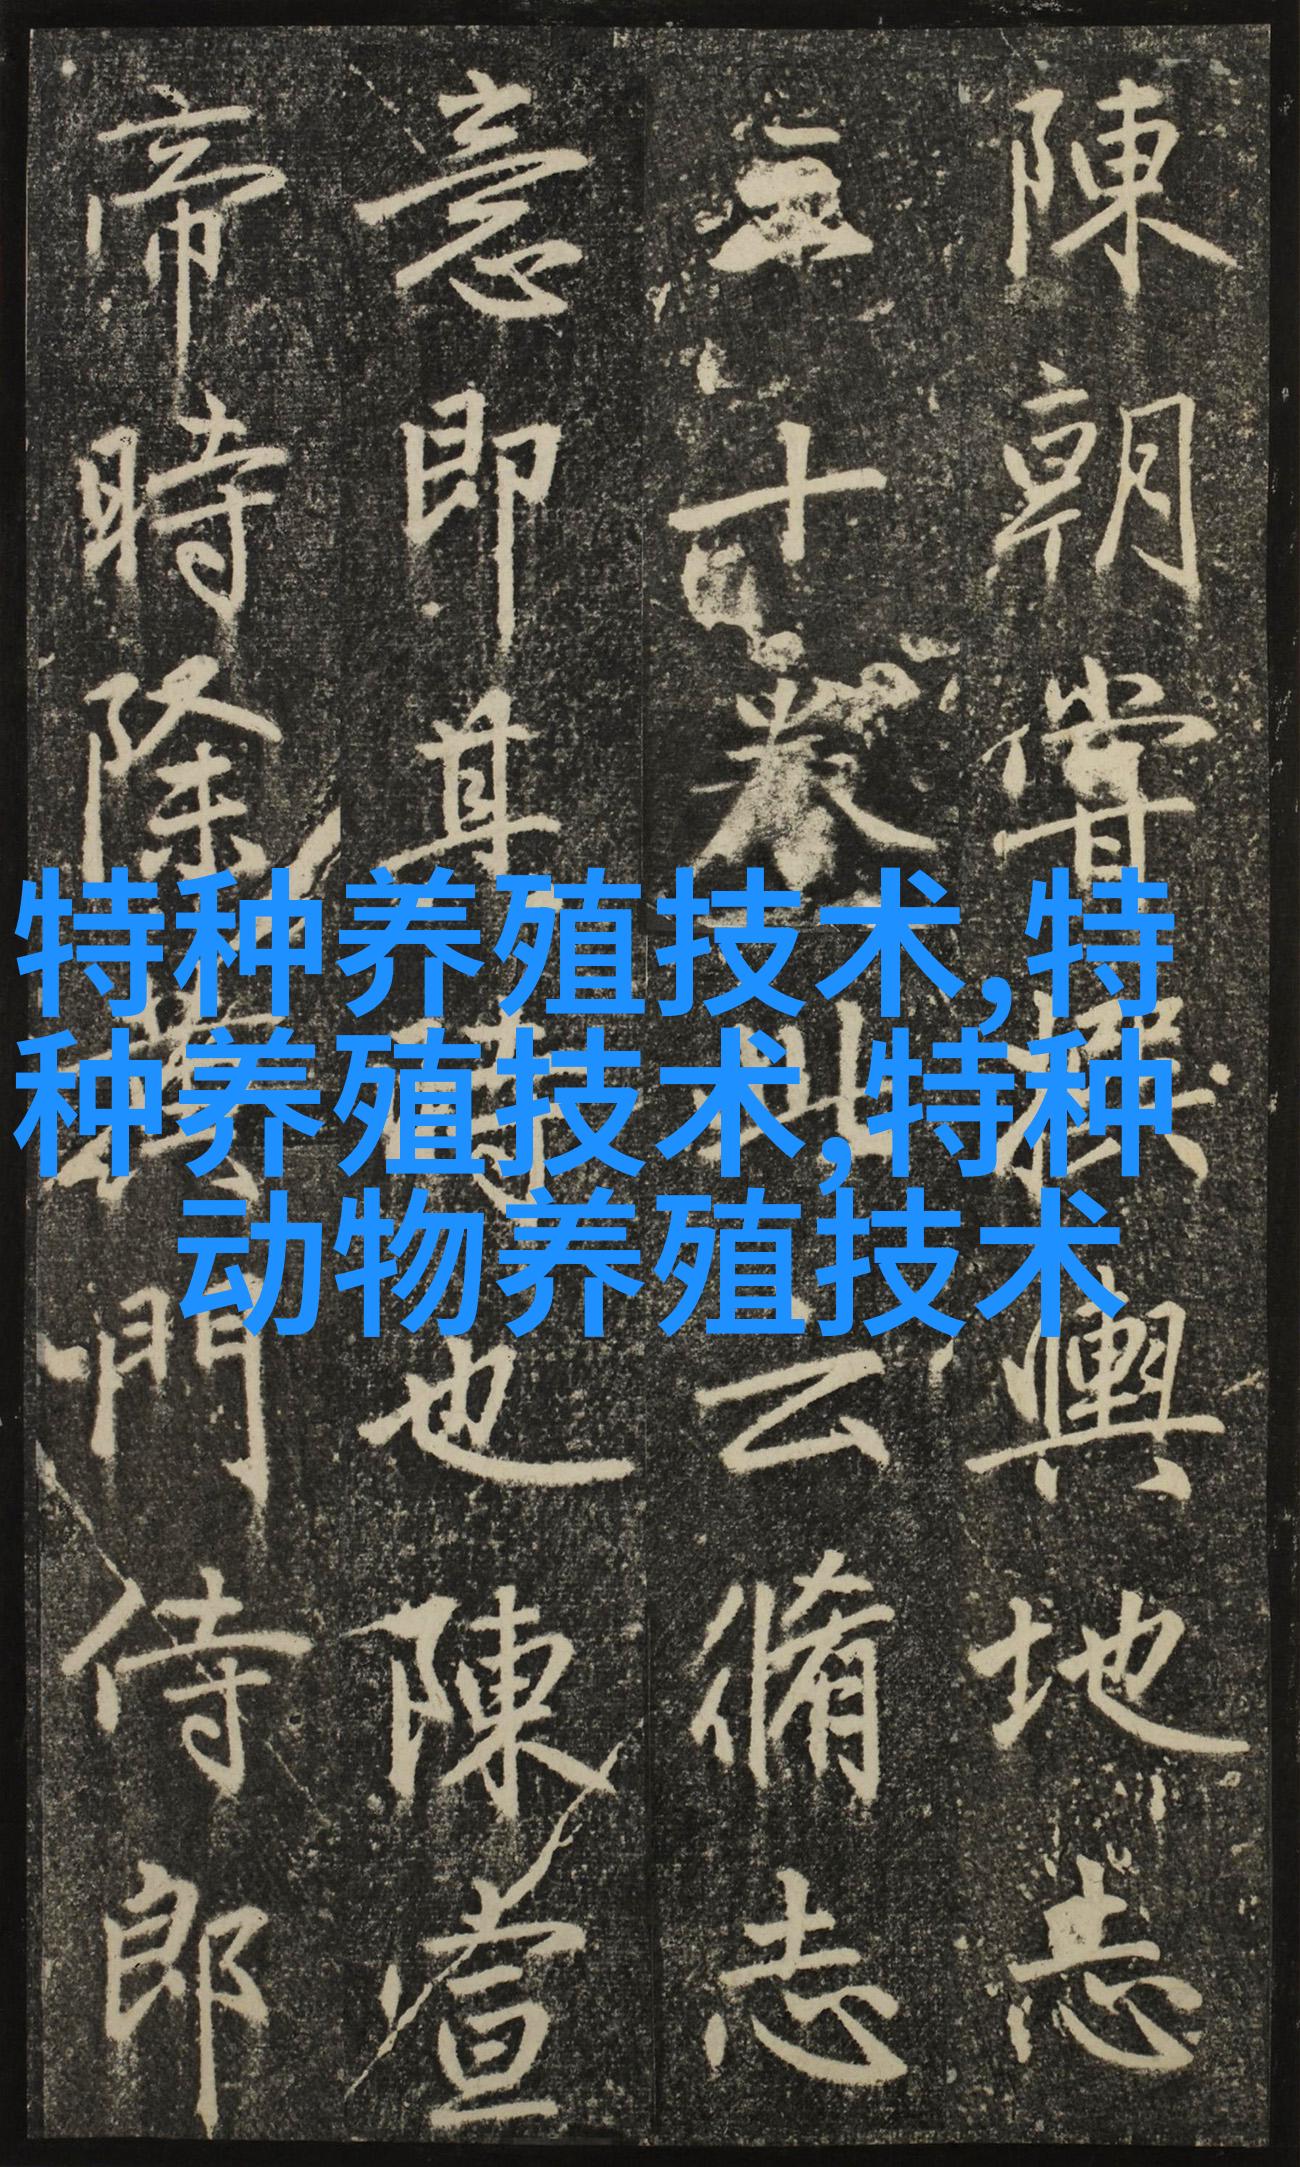 陳朝嘗撰輿地志
三十卷此云脩志
意即其時也陳宣
帝時除門侍郎
特种养殖技术,特
种养殖技术,特种
动物养殖技术